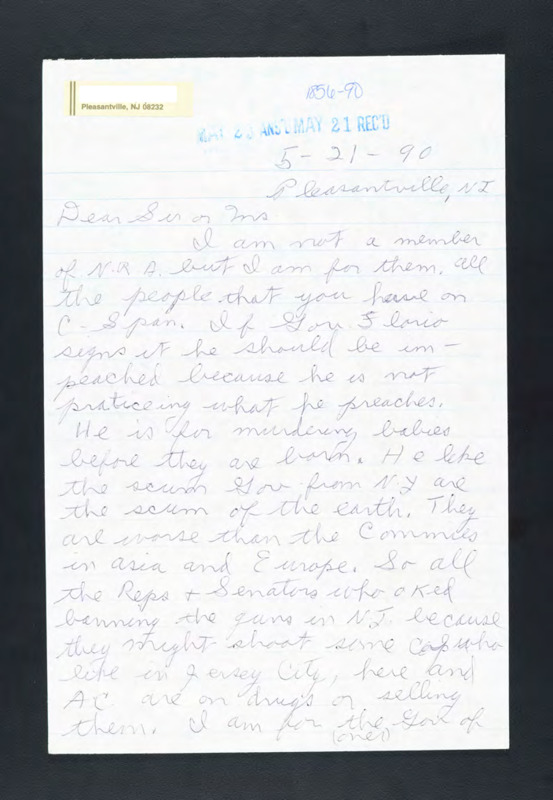 Pleasantville, NJ 08232
1856-90
MAY 23 ANS'D MAY 21 REC'D
5-21-90
Pleasantville, NJ
Dear Sir or Ms
I am not a member
of N.R.A. but I am for them. all
the people that you have on
C-Span. If Gov. Florio
signs it he should be im-
peached because he is not
praticeing what he preaches.
He is for murdering babies
before they are born. He like
the scum Gov from N.Y are
the scum of the earth. They
are worse than the Commies
in asia and Europe. So all
the Reps + Senators who oked
banning the guns in N.J. because
they might shoot some cop who
like in Jersey City, here and
A.C. are on drugs or selling
them. I am for the Gov of
(over)